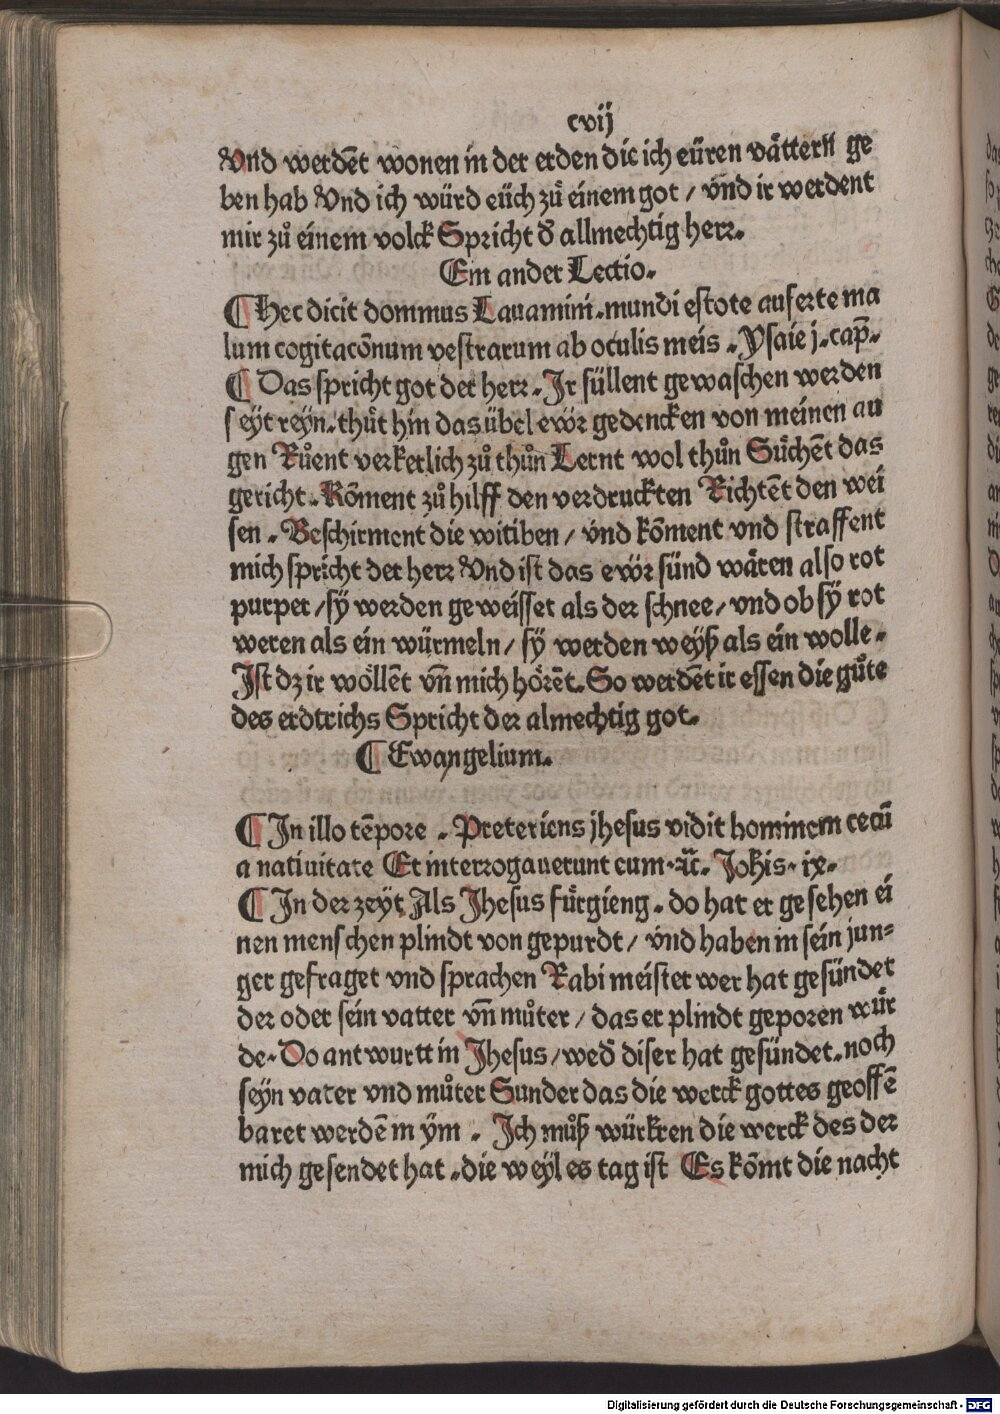 cvij
Vnd werdēt wonen in der erden die ich eüren vättern ge
ben hab Vnd ich würd eüch zů einem got / vnd ir werdent
mir zů einem volck Spricht d̕ allmechtig herr.
Ein ander Lectio.
¶ Hec dicit dominus Lauamini. mundi estote auferte ma
lum cogitacōnum vestrarum ab oculis meis . Ysaie j. cap̄.
¶ Das spricht got der herr. Ir süllent gewaschen werden
seÿt reÿn. thůt hin das übel ewr̈ gedencken von meinen au
gen Růent verkerlich zů thůn Lernt wol thůn Sůchēt das
gericht. Kōment zů hilff den verdruckten Richtēt den wei
sen . Beschirment die witiben / vnd kōment vnd straffent
mich spricht der herr Vnd ist das ewr̈ sünd wären also rot
purper / sÿ werden geweisset als der schnee / vnd ob sÿ rot
weren als ein würmeln / sÿ werden weÿß als ein wolle.
Ist dz ir wöllēt vn̄ mich hörēt. So werdēt ir essen die gůte
des erdtrichs Spricht der almechtig got.
¶ Ewangelium.
¶ In illo tēpore . Preteriens jhesus vidit hominem cecū
a natiuitate Et interrogauerunt eum. ꝛc̄. Joh̄is. ix.
¶ In der zeÿt Als Jhesus fürgieng. do hat er gesehen ei
nen menschen plindt von gepurdt / vnd haben in sein jun=
ger gefraget vnd sprachen Rabi meister wer hat gesündet
der oder sein vatter vn̄ můter / das er plindt geporen wür
de. Do antwurtt in Jhesus / wed̕ diser hat gesündet. noch
seÿn vater vnd můter Sunder das die werck gottes geoffē
baret werdē in ÿm . Ich můß würkren die werck des der
mich gesendet hat . die weÿl es tag ist Es kōmt die nacht
Digitalisierung gefördert durch die Deutsche Forschungsgemeinschaft - DFG